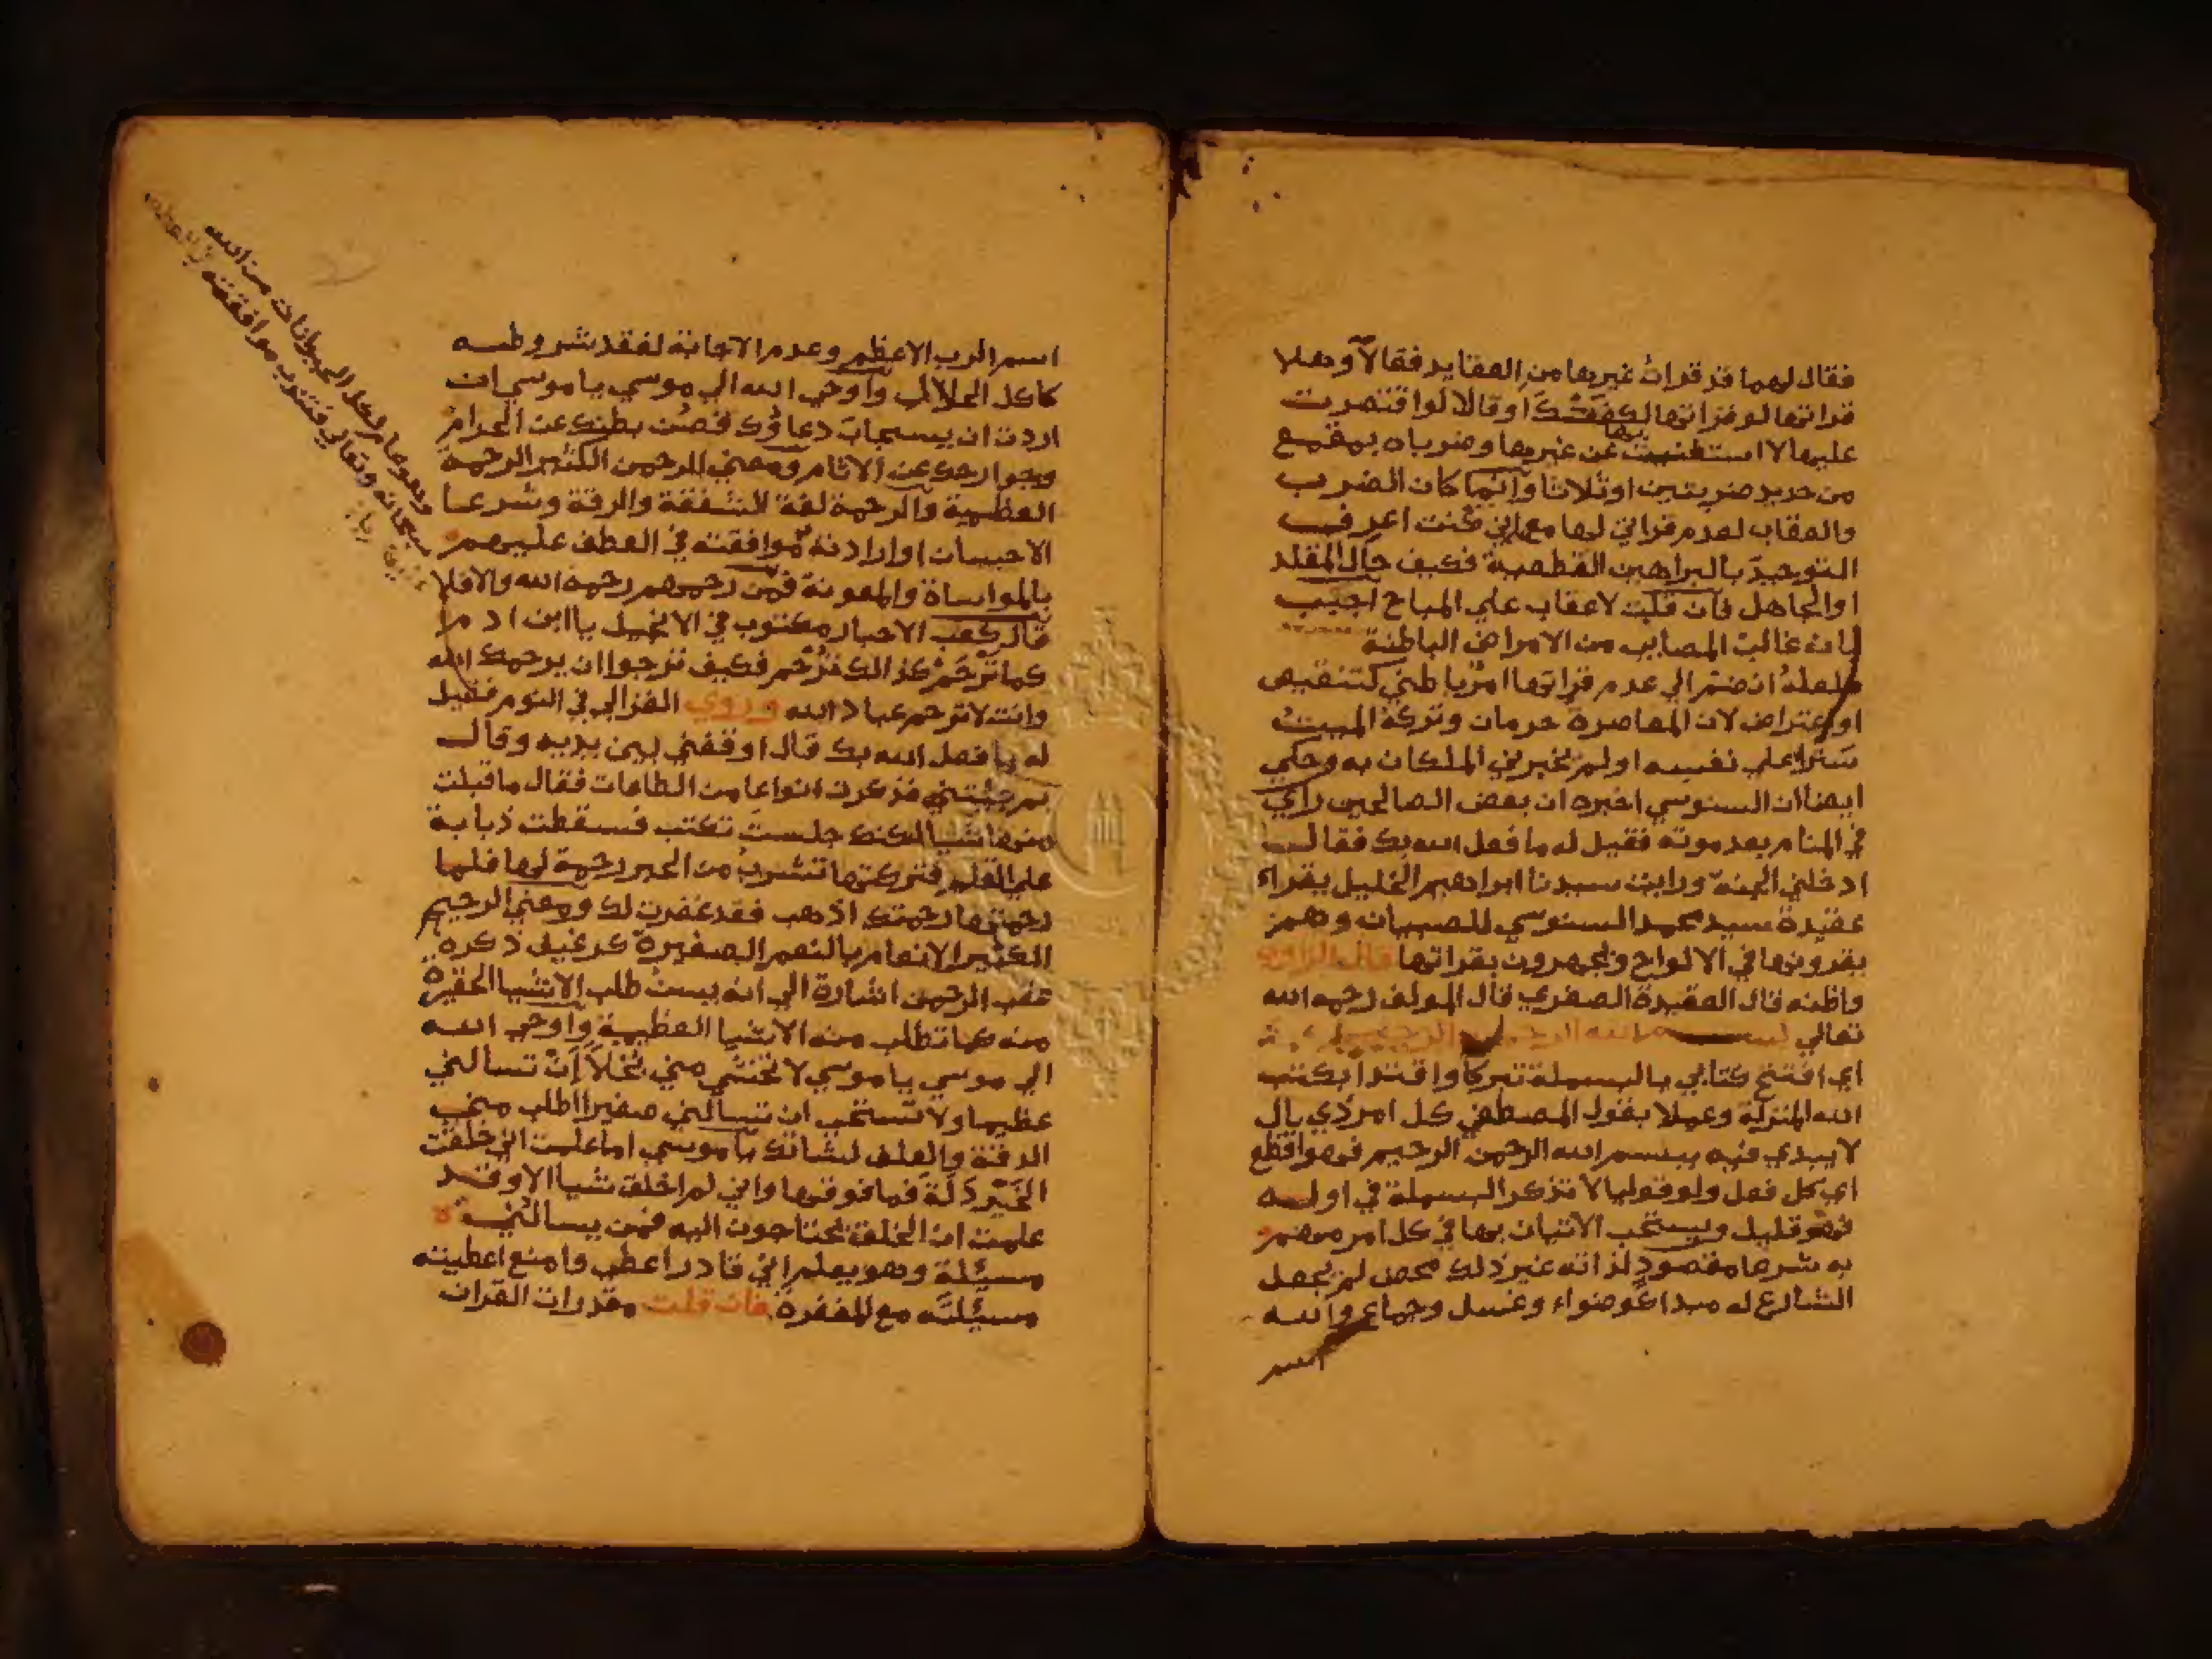 فقال لهما قد قرات غيرها من العقايد فقالا وهلا
قراتها لو قراتها لكفتك او قالا لو اقتصرت
عليها لا استغنيت بها عن غيرها وضرباه بمقمع
من حديد ضربتين او ثلاثا وانما كان الضرب
والعقاب لعدم قراتي لها مع اني كنت اعرف
التوحيد بالبراهين القطعية فكيف حال المقلد
او الجاهل فان قلت لا عقاب علي المباح اجيب
بان غالب المصايب من الامراض الباطنة
فلعله انضم الي عدم قراتها امر باطني كتنقيص
او اعتراض لان المعاصرة حرمان وتركه الميت
سترا علي نفسه او لم يخبرني الملكان به وحكي
ايضا ان السنوسي اخبره ان بعض الصالحين راي
في المنام بعد موته فقيل له ما فعل الله بك فقال
ادخلني الجنة ورايت سيدنا ابراهيم الخليل يقراء
عقيدة سيد محمد السنوسي للصبيان وهم
يقرونها في الالواح ويجهرون بقراتها قال الراوي
واظنه قال العقيدة الصغري قال المولف رحمه الله
تعالي بسم الله الرحمن الرحيم
اي افتتح كتابي بالبسملة تبركا واقتدا بكتب
الله المنزلة وعملا بقول المصطفي كل امر ذي بال
لا يبدي فيه ببسم الله الرحمن الرحيم فهو اقطع
اي كل فعل ولو قوليا لا تذكر البسملة في اوله
فهو قليل ويستحب الاتيان بها في كل امر مهم
به شرعا مقصود لذاته غير ذلك محض لم يجعل
الشارع له مبدا كوضواء وغسل وجماع والله
اسم
اسم الرب الاعظم وعدم الاجابة لفقد شروطه
كاكل الحلال واوحي الله الي موسي يا موسي ان
اردت ان يستجاب دعاوك فصن بطنك عن الحرام
وجوارحك عن الاثام ومعني الرحمن الكثير الرحمة
العظيمة والرحمة لغة الشفقة والرقة وشرعا
الاحسان او ارادته موافقته في العطف عليهم
بالمواساة والمعونة فمن رحمهم رحمه الله والا فلا
قال كعب الاحبار مكتوب في الانجيل يا ابن ادم
كما ترحم كذالك ترحم فكيف ترجوا ان يرحمك الله
وانت لا ترحم عباد الله وروي الغزالي في النوم فقيل
له ما فعل الله بك قال اوقفني بين يديه وقال
بم جيتني فذكرت انواعا من الطاعات فقال ما قبلت
منها شيا لكنك جلست تكتب فسقطت ذبابة
علي القلم فتركتها تشرب من الحبر رحمة لها فلما
رحمتها رحمتك اذهب فقد غفرت لك ومعني الرحيم
الكثير الانعام بالنعم الصغيرة كرغيف ذكره
عقب الرحمن اشارة الي انه يسئ طلب الاشيا الحقيرة
منه كما تطلب منه الاشيا العظيمة واوحي الله
الي موسي يا موسي لا تخشي مني بخلا ان تسالني
عظيما ولا تستحي ان تسالني صغيرا اطلب مني
الدقة والعلف لشاتك يا موسي اما علمت اني خلقت
الخردلة فما فوقها واني لم اخلق شيا الا وقد
علمت ان الخلق يحتاجون اليه فمن يسالني
مسيلة وهو يعلم اني قادر اعطي وامنع اعطيته
مسيلته مع المغفرة فان قلت مقدرات القران
الحيوانات من الله
سبحانه وتعالي فتتوب موافقته